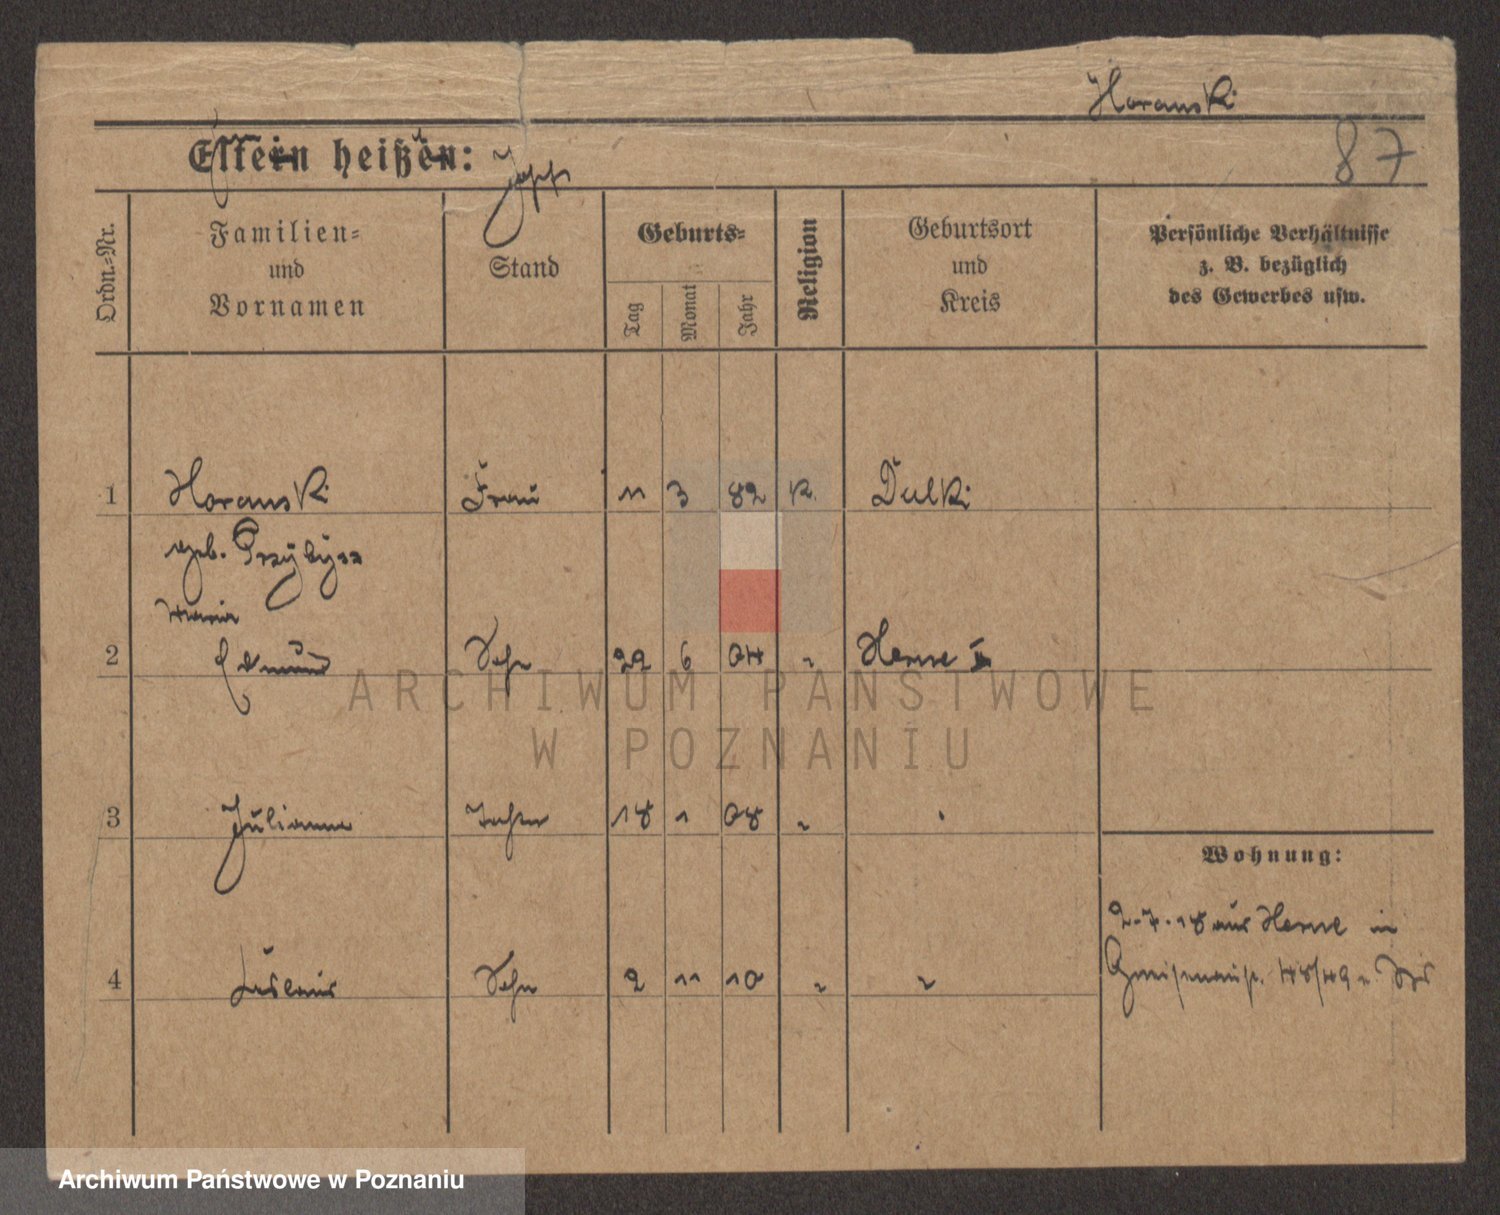 Horanski
87
Eltern heißen:
Ordn.-Nr.
Familien-
und
Vornamen
Stand
Geburts-
Tag
Monat
Jahr
Religion
Geburtsort
und
Kreis
Persönliche Verhältnisse
z. B. bezüglich
des Gewerbes usw.
1 Horanski Frau 11 3 82 K. Dulki
geb.
Maria
2 Edmund Sohn 22 6 04 " Herne
3 Julianna 18 1 08 "
Wohnung:
2.7.18 aus Herne in
4 Sohn 2 11 10 " "
Gneisenaustr. 48/49
ARCHIWUM PAŃSTWOWE
W POZNANIU
Archiwum Państwowe w Poznaniu